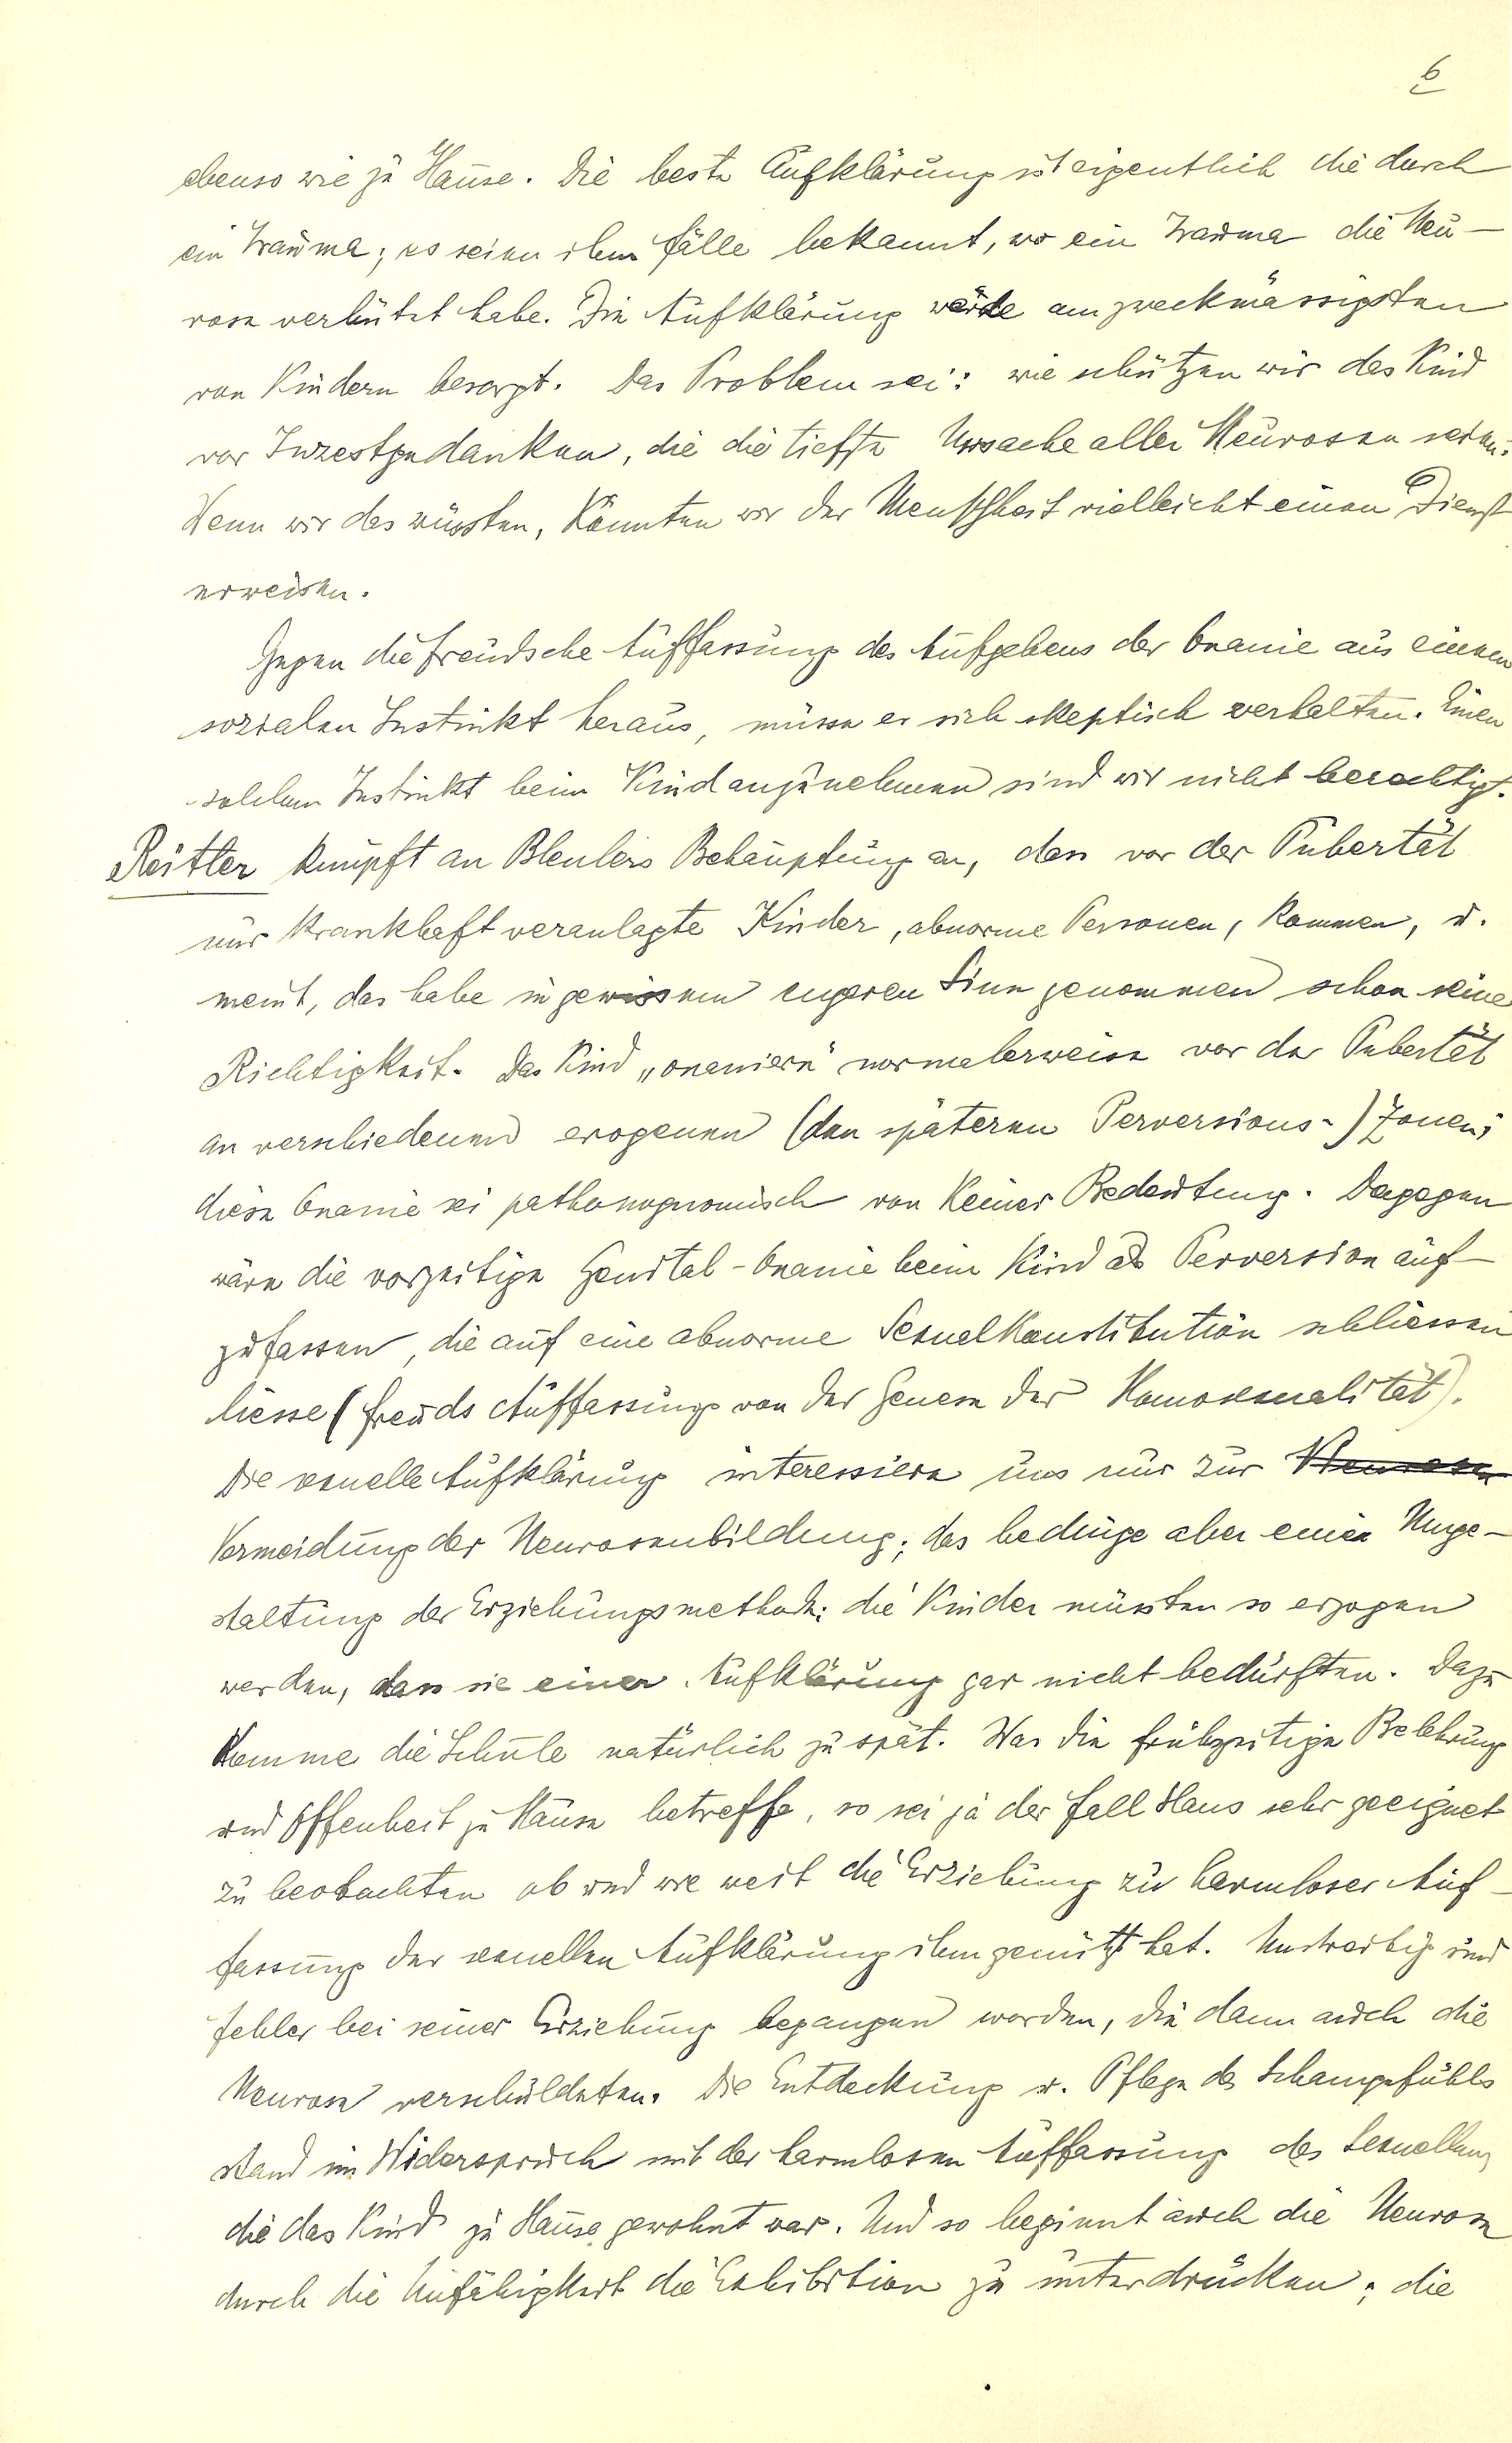 6
ebenso wie zu Hause. Die beste Aufklärung ist eigentlich die durch
ein Trauma; es seien ihm Fälle bekannt, wo ein Trauma die Neu-
rose verhütet habe. Die Aufklärung werde am zweckmässigsten
von Kindern besorgt. Das Problem sei: wie schützen wir das Kind
vor Inzestgedanken, die die tiefste Ursache aller Neurosen seien.
Wenn wir das wüssten, könnten wir der Menschheit vielleicht einen Dienst
erweisen.
Gegen die Freudsche Auffassung des Aufgebens der Onanie aus einem
sozialen Instinkt heraus, müsse er sich skeptisch verhalten. Einen
solchen Instinkt beim Kind anzunehmen sind wir nicht berechtigt.
Reitler knüpft an Bleulers Behauptung an, dass vor der Pubertät
nur krankhaft veranlagte Kinder, abnorme Personen, kommen, u.
meint, das habe in gewissem engeren Sinn genommen schon seine
Richtigkeit. Das Kind „onaniere" normalerweise vor der Pubertät
an verschiedenen erogenen (den späteren Perversions-) Zonen;
diese Onanie sei pathognomisch von keiner Bedeutung. Dagegen
wäre die vorzeitige Genital-Onanie beim Kind als Perversion auf-
zufassen, die auf eine abnorme Sexualkonstitution schliessen
liesse (Freuds Auffassung von der Genese der Homosexualität).
Die sexuelle Aufklärung interessiere uns nur zur Neurosen
Vermeidung der Neurosenbildung; das bedinge aber eine Umge-
staltung der Erziehungsmethode: die Kinder müssten so erzogen
werden, dass sie einer Aufklärung gar nicht bedürften. Dazu
komme die Schule natürlich zu spät. Was die frühzeitige Belehrung
und Offenheit zu Hause betreffe, so sei ja der Fall Hans sehr geeignet
zu beobachten ob und wie weit die Erziehung zu harmloser Auf-
fassung der sexuellen Aufklärung ihm genützt hat. Unstreitig sind
Fehler bei seiner Erziehung begangen worden, die dann auch die
Neurose verschuldeten. Die Entdeckung u. Pflege des Schamgefühls
stand im Widerspruch mit der harmlosen Auffassung des Sexuellen,
die das Kind zu Hause gewohnt war. Und so beginnt auch die Neurose
durch die Unfähigkeit die Exhibition zu unterdrücken; die